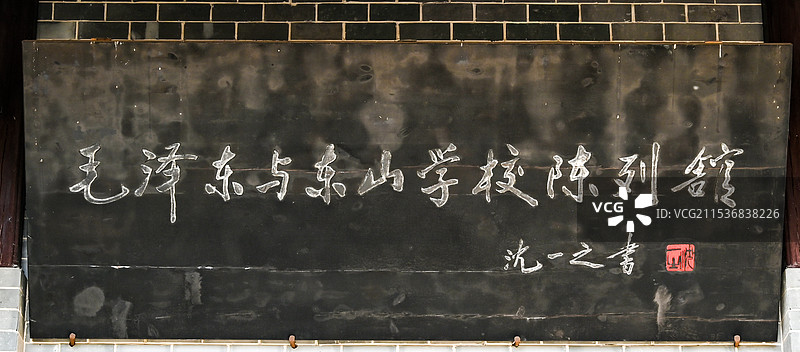 毛泽东与东山学校陈列舘
沈一之书
VCG
ID: VCG211536838226